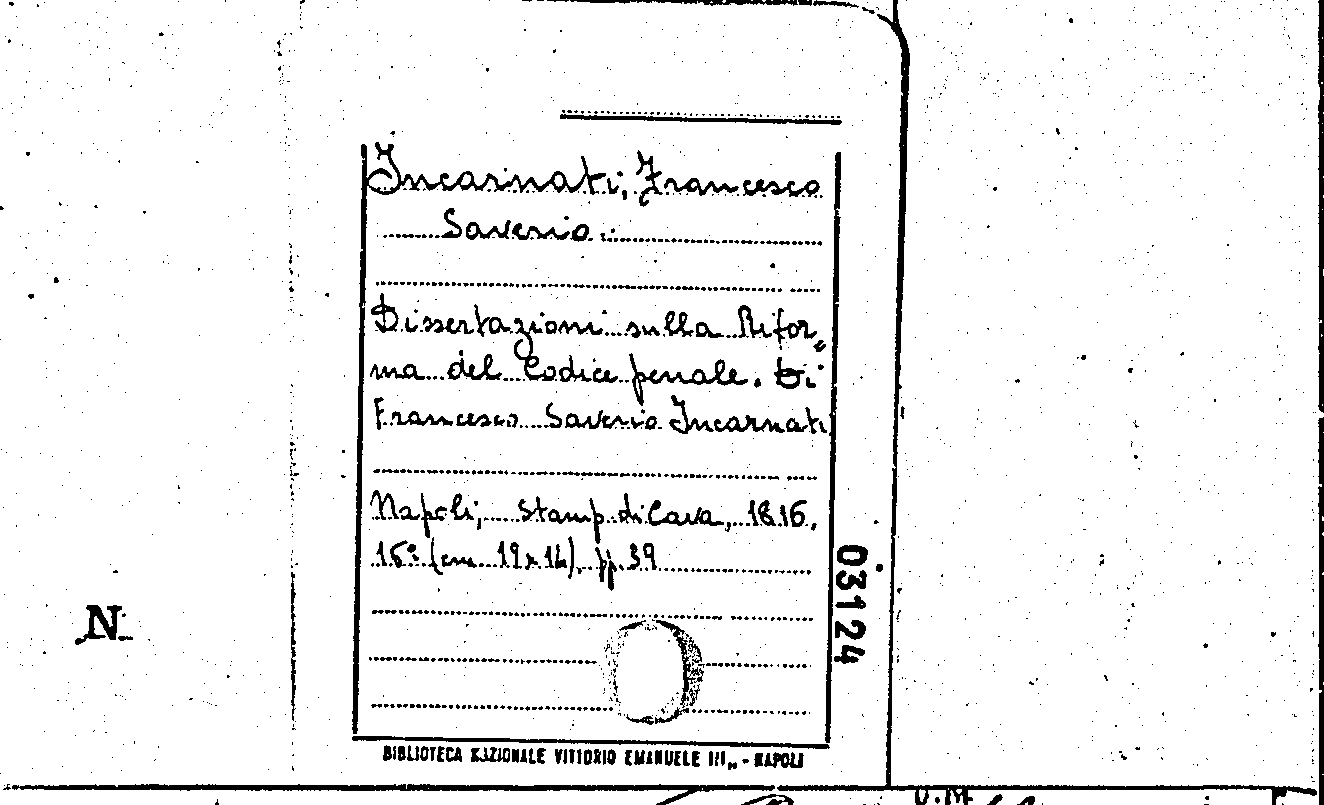 Incarnati, Francesco
Saverio.
Dissertazioni sulla Rifor„
ma del Codice penale. Di
Francesco Saverio Incarnati
Napoli, Stamp. di Cava, 1816.
16º (cm 19x14), pp. 39
03124
N.
BIBLIOTECA NAZIONALE VITTORIO EMANUELE III„ - NAPOLI